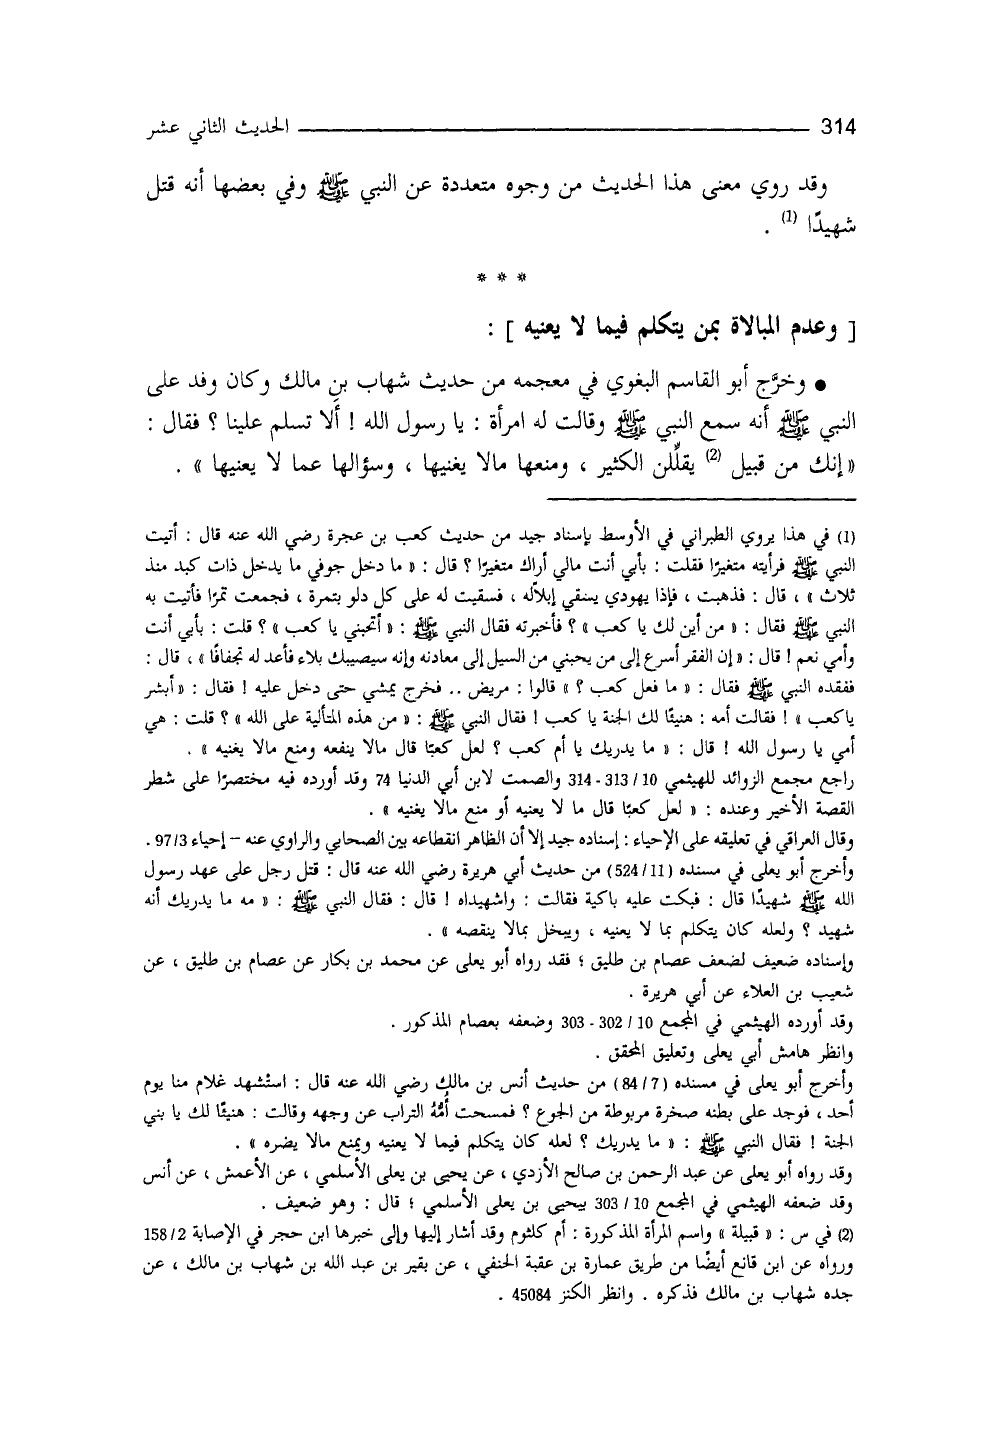 314 الحديث الثاني عشر
وقد روي معنى هذا الحديث من وجوه متعددة عن النبي ﷺ وفي بعضها أنه قتل
شهيدًا (1) .
* * *
[ وعدم المبالاة بمن يتكلم فيما لا يعنيه ] :
● وخرَّج أبو القاسم البغوي في معجمه من حديث شهاب بنِ مالك وكان وفد على
النبي ﷺ أنه سمع النبي ﷺ وقالت له امرأة : يا رسول الله ! ألا تسلم علينا ؟ فقال :
« إنك من قبيل (2) يقلِّلن الكثير ، ومنعها مالا يغنيها ، وسؤالها عما لا يعنيها » .
(1) في هذا يروي الطبراني في الأوسط بإسناد جيد من حديث كعب بن عجرة رضي الله عنه قال : أتيت
النبي ﷺ فرأيته متغيرًا فقلت : بأبي أنت مالي أراك متغيرًا ؟ قال : « ما دخل جوفي ما يدخل ذات كبد منذ
ثلاث » ، قال : فذهبت ، فإذا يهودي يسقي إبلاله ، فسقيت له على كل دلو بتمرة ، فجمعت تمرًا فأتيت به
النبي ﷺ فقال : « من أين لك يا كعب » ؟ فأخبرته فقال النبي ﷺ : « أتحبني يا كعب » ؟ قلت : بأبي أنت
وأمي نعم ! قال : « إن الفقر أسرع إلى من يحبني من السيل إلى معادنه وإنه سيصيبك بلاء فأعد له تجفافًا » ، قال :
ففقده النبي ﷺ فقال : « ما فعل كعب ؟ » قالوا : مريض .. فخرج يمشي حتى دخل عليه ! فقال : « أبشر
ياكعب » ! فقالت أمه : هنيئًا لك الجنة يا كعب ! فقال النبي ﷺ : « من هذه المتألية على الله » ؟ قلت : هي
أمي يا رسول الله ! قال : « ما يدريك يا أم كعب ؟ لعل كعبًا قال مالا ينفعه ومنع مالا يغنيه » .
راجع مجمع الزوائد للهيثمي 10 / 313 - 314 والصمت لابن أبي الدنيا 74 وقد أورده فيه مختصرًا على شطر
القصة الأخير وعنده : « لعل كعبًا قال ما لا يعنيه أو منع مالا يغنيه » .
وقال العراقي في تعليقه على الإحياء : إسناده جيد إلا أن الظاهر انقطاعه بين الصحابي والراوي عنه – إحياء 3/ 97 .
وأخرج أبو يعلى في مسنده (11/ 524) من حديث أبي هريرة رضي الله عنه قال : قتل رجل على عهد رسول
الله ﷺ شهيدًا قال : فبكت عليه باكية فقالت : واشهيداه ! قال : فقال النبي ﷺ : « مه ما يدريك أنه
شهيد ؟ ولعله كان يتكلم بما لا يعنيه ، ويبخل بمالا ينقصه » .
وإسناده ضعيف لضعف عصام بن طليق ؛ فقد رواه أبو يعلى عن محمد بن بكار عن عصام بن طليق ، عن
شعيب بن العلاء عن أبي هريرة .
وقد أورده الهيثمي في المجمع 10 / 302 - 303 وضعفه بعصام المذكور .
وانظر هامش أبي يعلى وتعليق المحقق .
وأخرج أبو يعلى في مسنده (7 / 84) من حديث أنس بن مالك رضي الله عنه قال : استُشهد غلام منا يوم
أحد ، فوجد على بطنه صخرة مربوطة من الجوع ؟ فمسحت أُمُّهُ التراب عن وجهه وقالت : هنيئًا لك يا بني
الجنة ! فقال النبي ﷺ : « ما يدريك ؟ لعله كان يتكلم فيما لا يعنيه ويمنع مالا يضره » .
وقد رواه أبو يعلى عن عبد الرحمن بن صالح الأزدي ، عن يحيى بن يعلى الأسلمي ، عن الأعمش ، عن أنس
وقد ضعفه الهيثمي في المجمع 10 / 303 بيحيى بن يعلى الأسلمي ؛ قال : وهو ضعيف .
(2) في س : « قبيلة » واسم المرأة المذكورة : أم كلثوم وقد أشار إليها وإلى خبرها ابن حجر في الإصابة 2/ 158
ورواه عن ابن قانع أيضًا من طريق عمارة بن عقبة الحنفي ، عن بقير بن عبد الله بن شهاب بن مالك ، عن
جده شهاب بن مالك فذكره . وانظر الكنز 45084 .